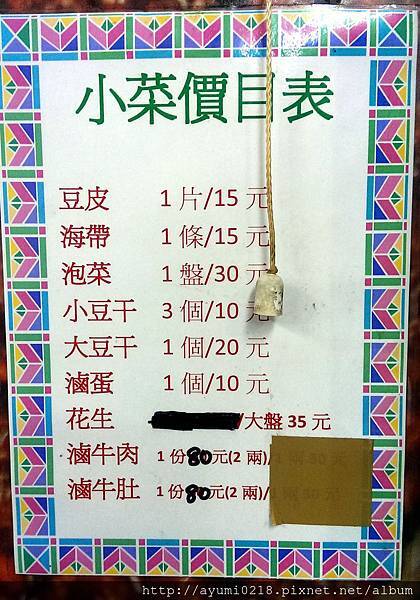 小菜價目表
豆皮 1 片/15 元
海帶 1 條/15 元
泡菜 1 盤/30 元
小豆干 3 個/10 元
大豆干 1 個/20 元
滷蛋 1 個/10 元
花生 /大盤 35 元
滷牛肉 1 份80元(2 兩)/
滷牛肚 1 份80元(2 兩)/
http://ayumi0218.pixnet.net/album